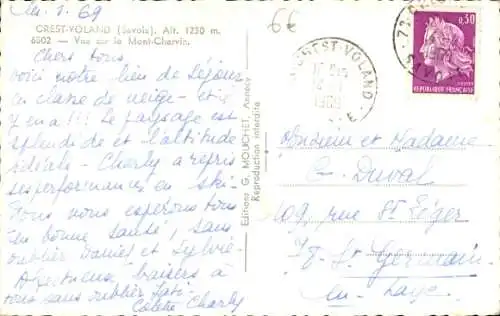 1.69
CREST-VOLAND (Savoie). Alt. 1230 m.
6002 — Vue sur le Mont-Charvin.
6€
Chers tous
voici notre lieu de séjour
en classe de neige - et il
y en a !!! Le paysage est
splendide et l'altitude
idéale - Charly a repris
ses performances en ski -
Tous nous espérons tous
en bonne santé, sans
oublier Daniel et Sylvie -
Affectueux baisers à
tous sans oublier
Colette Charly
Editions G. MOUCHET, Annecy
Reproduction interdite
CREST-VOLAND
0,30
REPUBLIQUE FRANÇAISE
Monsieur et Madame
Duval
109, rue St Léger
78. St Germain
en-Laye